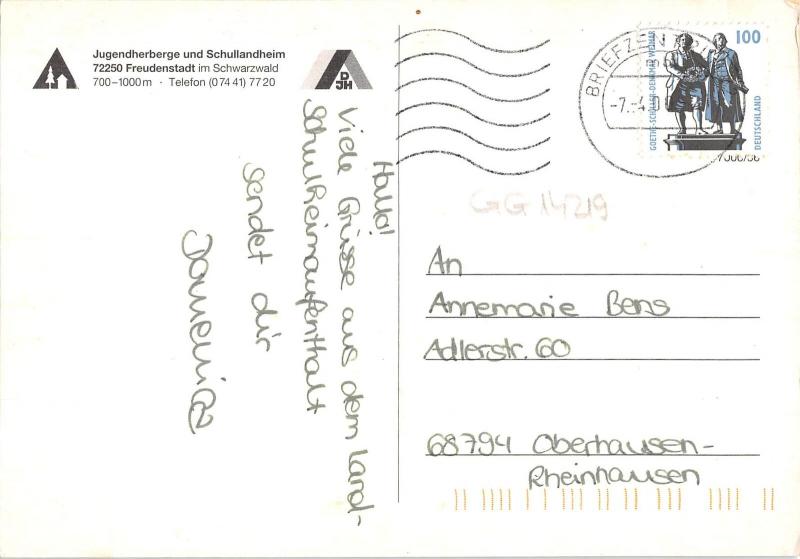 Jugendherberge und Schullandheim
72250 Freudenstadt im Schwarzwald
700–1000 m · Telefon (0 74 41) 77 20
D
JH
Hallo!
Viele Grüsse aus dem Land-
schulheimaufenthalt
sendet dir
BRIEFZEN
-7.-4.
100
GOETHE-SCHILLER-DENKMAL WEIMAR
DEUTSCHLAND
GG 14219
An
Annemarie Bens
Adlerstr. 60
68794 Oberhausen-
Rheinhausen